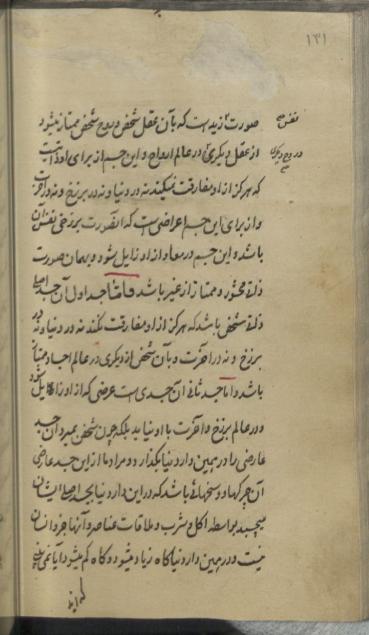 ۱۳۱
صورت از یداست که بآن عقل شخص و روح شخص ممتاز میشود
نفس
از عقل دیکری در عالم ارواح و این جسم از برای او ذاتیست
و روح دیکری
که هرکز از او مفارقت نمیکند نه در دنیا و نه در برزخ و نه در آخرت
و از برای این جسم اعراضی است که آنصورت برزخی نفس آن
باشد و این جسم در معاد از او زایل شود و بهمان صورت
ذاتی محشور و ممتاز از غیر باشد فاما جسد اول آن جسد اصلی
ذاتی شخص باشد که هرکز از او مفارقت نکند نه در دنیا و نه در
برزخ و نه در آخرت و بآن شخص از دیکری در عالم اجساد ممتاز
باشد و اما جسد ثانی آن جسدی است عرضی که از او زایل شود
و در عالم برزخ و آخرت با او نیاید بلکه چون شخص بمیرد آن جسد
عارضی را در همین دار دنیا بکذارد و مراد ما از این جسد عارضی
آن چرکها و وسخهائی باشد که در این دار دنیا بجسد اصلی ایشان
میچسبد بواسطه اکل و شرب و ملاقات عناصر و آنها جزو انسان
نیست و در همین دار دنیا کاه زیاد میشود و کاه کم میشود آیا نمی بینی
که اینها